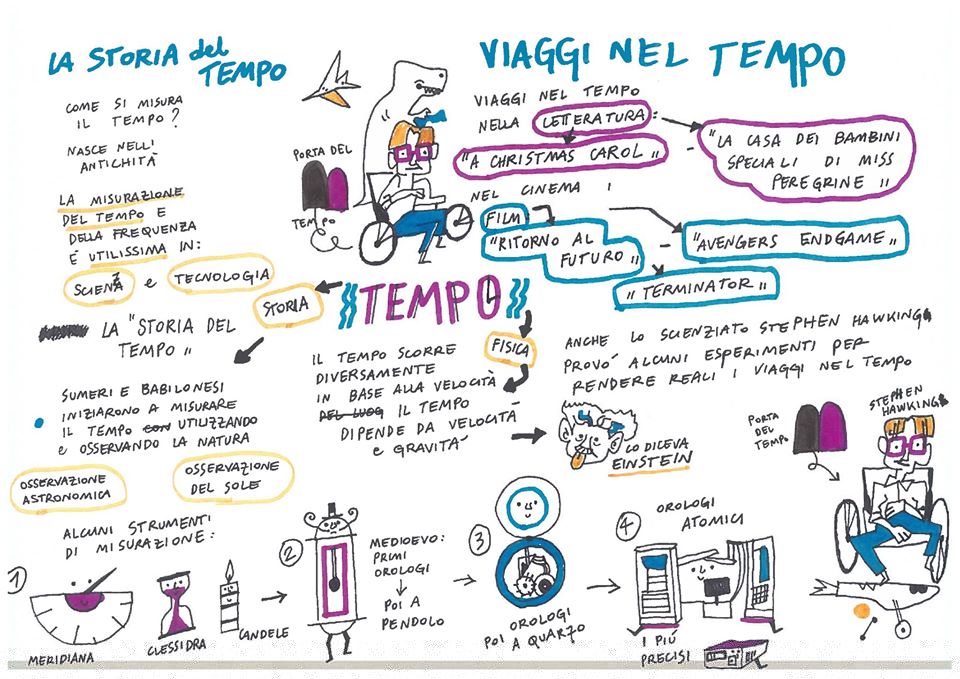 LA STORIA del
TEMPO
COME SI MISURA
IL TEMPO?
NASCE NELL'
ANTICHITÀ
LA MISURAZIONE
DEL TEMPO E
DELLA FREQUENZA
E' UTILISSIMA IN:
SCIENZA e TECNOLOGIA
STORIA
LA "STORIA DEL
TEMPO"
SUMERI E BABILONESI
INIZIARONO A MISURARE
IL TEMPO CON UTILIZZANDO
E OSSERVANDO LA NATURA
OSSERVAZIONE
ASTRONOMICA
OSSERVAZIONE
DEL SOLE
ALCUNI STRUMENTI
DI MISURAZIONE:
1
MERIDIANA
CLESSIDRA
CANDELE
2
MEDIOEVO:
PRIMI
OROLOGI
POI A
PENDOLO
3
OROLOGI
POI A QUARZO
4
OROLOGI
ATOMICI
I PIÚ
PRECISI
PORTA DEL
TEMPO
TEMPO
FISICA
IL TEMPO SCORRE
DIVERSAMENTE
IN BASE ALLA VELOCITÀ
DEL LUOG IL TEMPO
DIPENDE DA VELOCITÀ
e GRAVITA'
LO DICEVA
EINSTEIN
VIAGGI NEL TEMPO
VIAGGI NEL TEMPO
NELLA LETTERATURA:
"A CHRISTMAS CAROL"
- "LA CASA DEI BAMBINI
SPECIALI DI MISS
PEREGRINE"
NEL CINEMA :
FILM
"RITORNO AL
FUTURO"
- "AVENGERS ENDGAME"
"TERMINATOR"
ANCHE LO SCIENZIATO STEPHEN HAWKING
PROVO' ALCUNI ESPERIMENTI PER
RENDERE REALI I VIAGGI NEL TEMPO
PORTA
DEL
TEMPO
STEPHEN
HAWKING